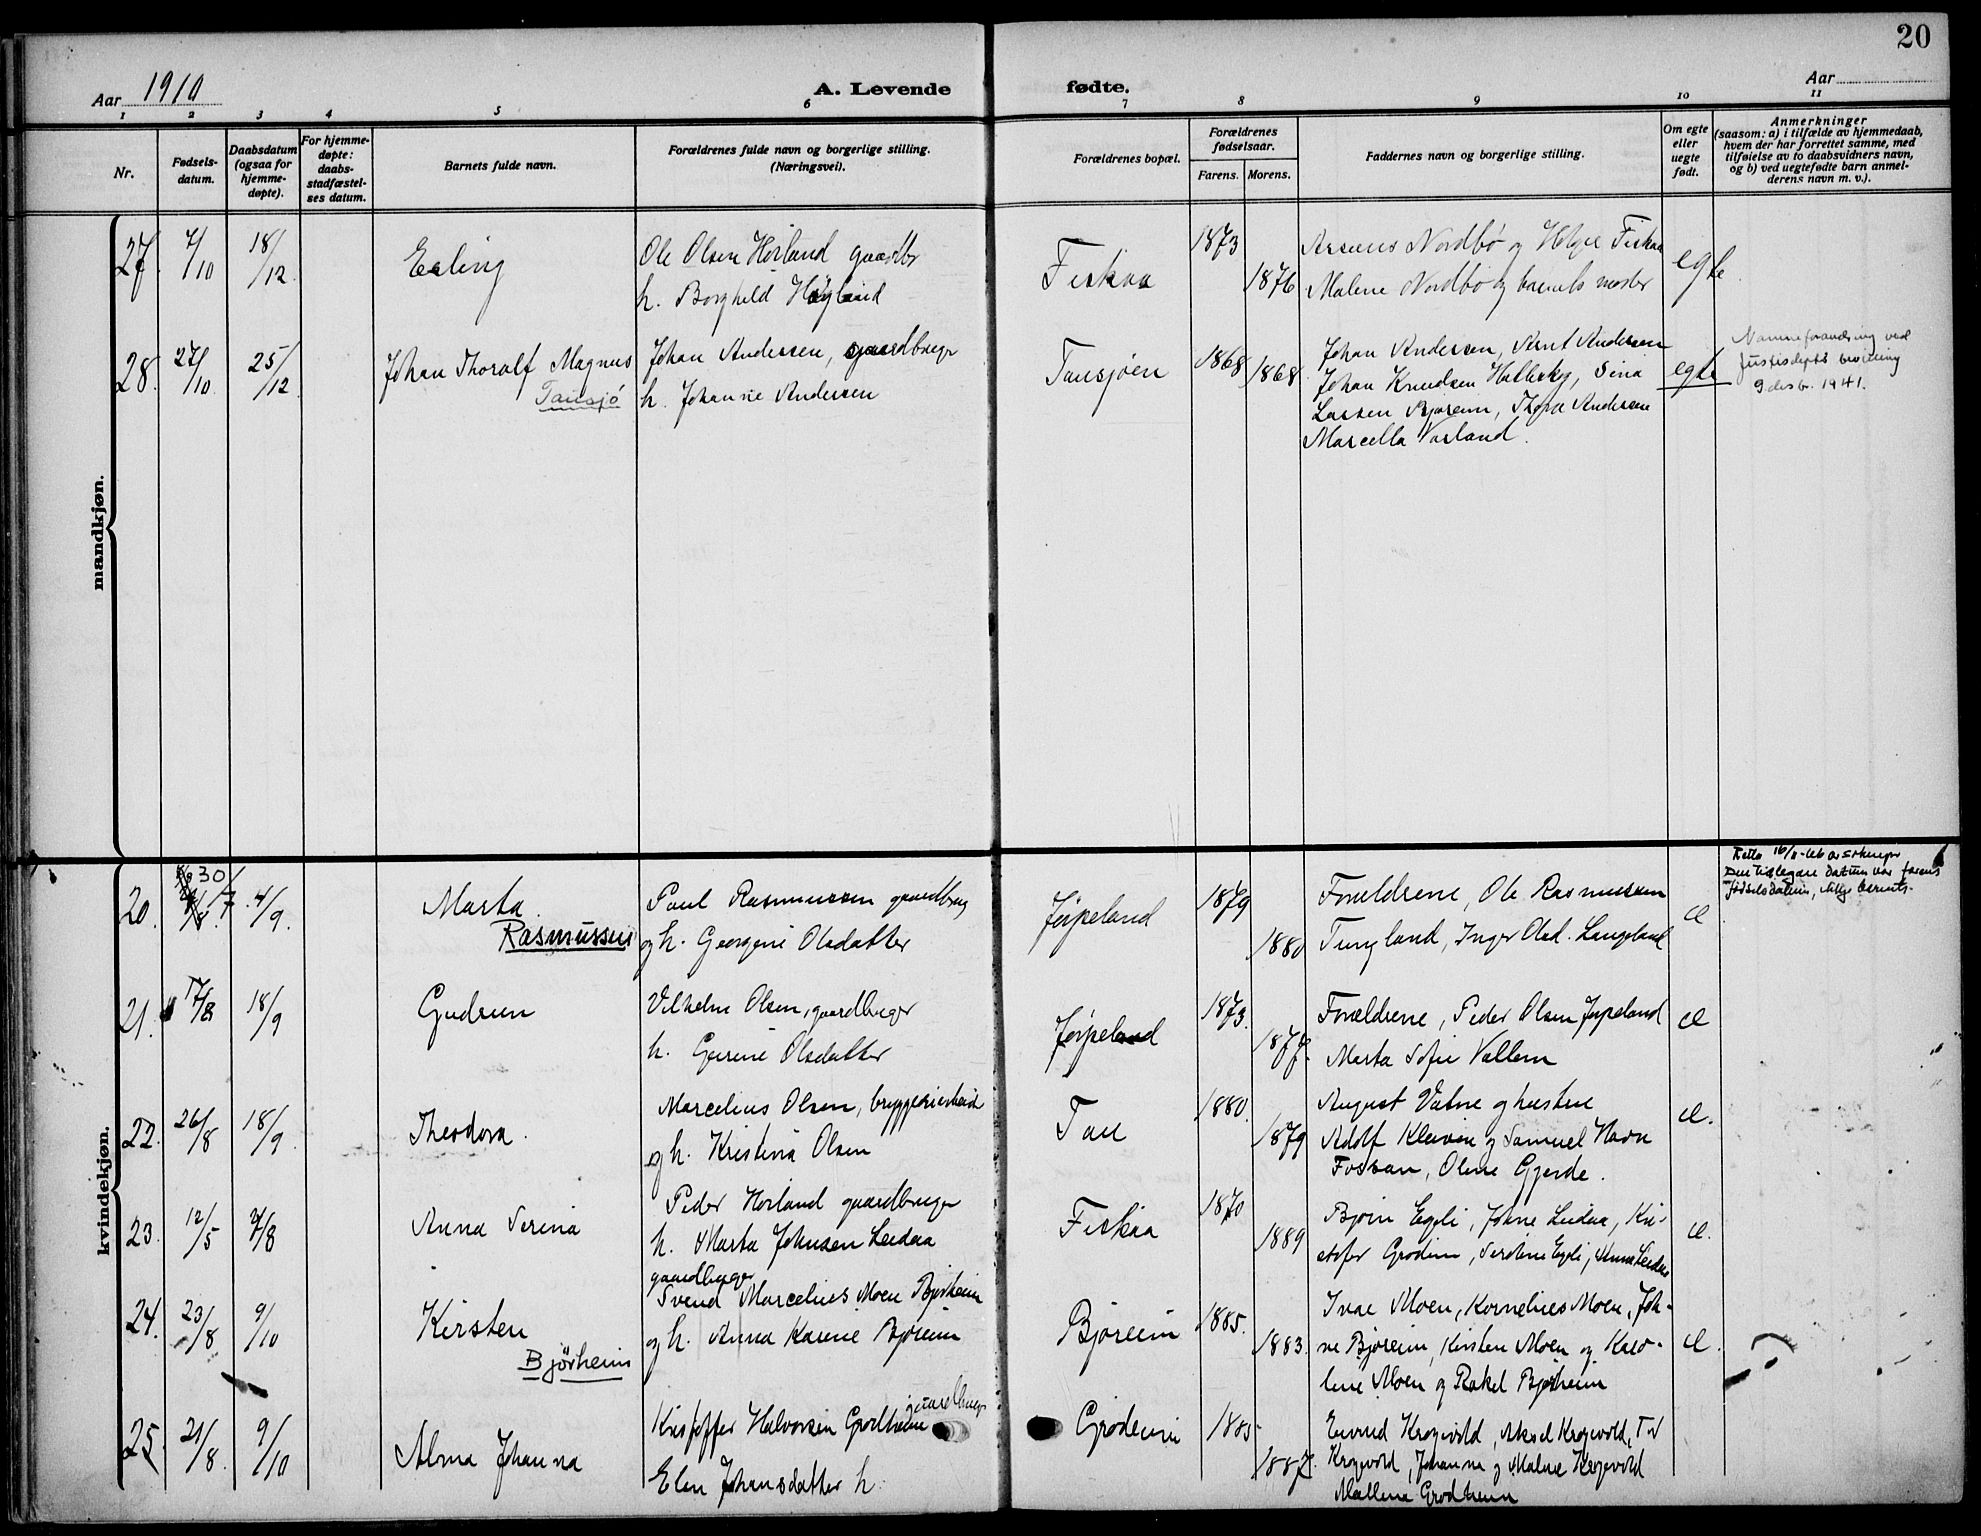 20
Aar 1910
A. Levende fødte.
Aar
1 2 3 4 5 6 7 8 9 10 11
Nr.
Fødsels-
datum.
Daabsdatum
(ogsaa for
hjemme-
døpte).
For hjemme-
døpte:
daabs-
stadfæstel-
ses datum.
Barnets fulde navn.
Forældrenes fulde navn og borgerlige stilling.
(Næringsvei).
Forældrenes bopæl.
Forældrenes
fødselsaar.
Farens. Morens.
Faddernes navn og borgerlige stilling.
Om egte
eller
uegte
født.
Anmerkninger
(saasom: a) i tilfælde av hjemmedaab,
hvem der har forrettet samme, med
tilføielse av to daabsvidners navn,
og b) ved uegtefødte barn anmel-
derens navn m. v.).
mandkjøn.
27. 7/10 18/12 Erling
Ole Olsen Hørland gaardbr
h. Borghild Høyland
Fiskaa 1873 1876
Nordbø og Helge Fiskaa
Malene Nordbø og barnets moder
egte
28. 27/10 25/12 Johan Thoralf Magnus
Tausjø
Johan Andersen, gaardbruger
h. Johanne Andersen
Tausjøen 1868 1868
Johan Andersen, Arnt Andersen
Johan Knudsen Sina
Larsen Bjøreim, Thora Andersen
Marcella Vorland.
egte
Navneforandring ved
Justisdepts bevilling
9 desbr. 1941.
kvindekjøn.
20. 30/7 4/9. Marta.
Rasmussen
Paul Rasmussen gaardbrug
og h. Georgine Olsdatter
Jørpeland 1879 1880
Forældrene, Ole Rasmussen
Tungland, Inger Olsd. Langeland
e
Den tidligere datum var farens
fødselsdatum, ikkje barnets.
21. 17/8 18/9 Gudrun
Vilhelm Olsen, gaardbruger
h. Gurine Olsdatter
Jørpeland 1873. 1877.
Forældrene, Peder Olsen Jørpeland
Marta Sofie Vallem
e
22. 26/8 18/9 Theodora.
Marcelius Olsen, bryggeriarbeid
og h. Kristina Olsen
Tau 1880. 1879
August Vatne og hustru
Adolf Kleiven og Samuel
Fossan, Oline Gjerde.
e.
23. 12/5 7/8 Anna Serina
Peder Hørland gaardbruger
h. Marta Johnsen Leidaa
Fiskaa 1870 1889
Bjørn Egeli, Johne Leidaa, Kri-
stofer Grødeim, Serine Egeli, Anna Leidaa
e.
24. 23/8 9/10 Kirsten
Bjørheim
gaardbruger
Svend Marcelius Moen Bjørheim
og h. Anna Karine Bjøreim
Bjøreim 1885. 1883.
Ivar Moen, Kornelius Moen, Joh-
ne Bjøreim, Kirsten Moen og Karo-
line Moen og Rakel Bjørheim
e.
25. 21/8. 9/10 Alma Johanna
gaardbruger
Kristoffer Halvorsen Grødheim
Elen Johansdatter h.
Grødeim 1885 1887.
Eivind Krogevold, Aksel Krogevold,
Krogevold, Johanna og Malene Krogevold
Mallena Grødheim